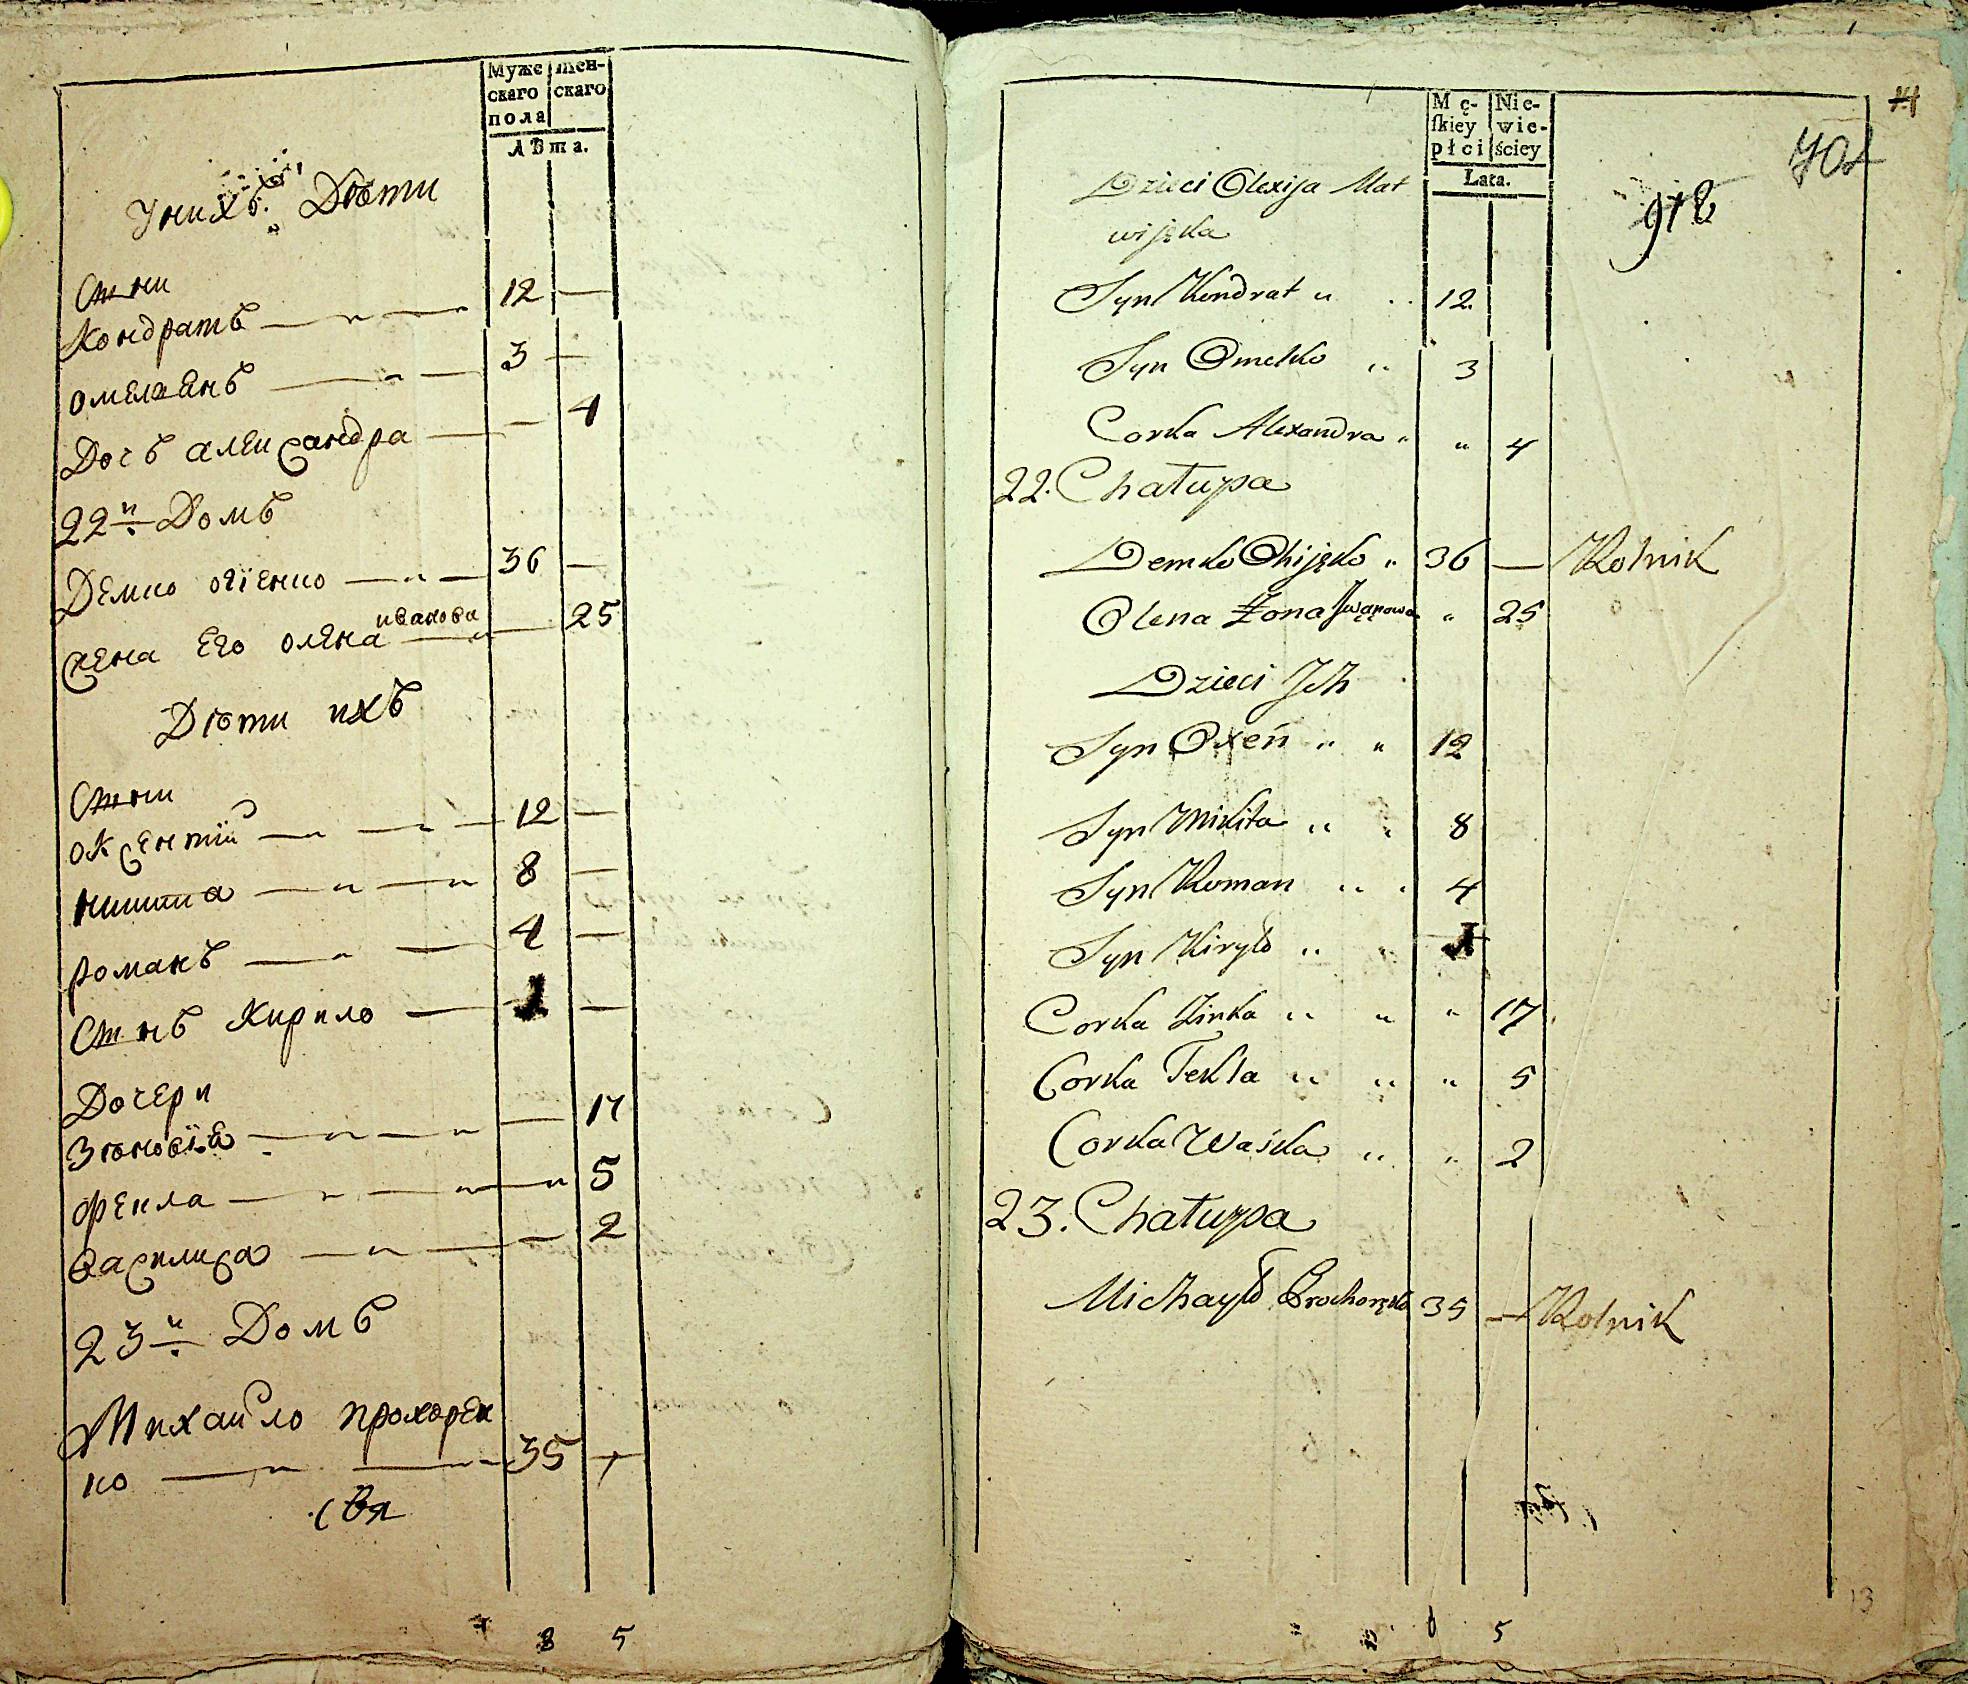 Муже
скаго
пола
Жен-
скаго
Лѣта.
У нихъ Дѣти
Сыни
Кондратъ 12 —
омелянъ 3 —
Дочъ александра — 4
22й Домъ
Демко огіенко 36 —
жена Его олена иванова — 25
Дѣти ихъ
Сыни
оксентій 12 —
никита 8 —
романъ 4 —
Сынъ Кирило 1 —
Дочери
Зѣновія — 17
фекла — 5
василиса — 2
23й Домъ
Михайло прохорен
ко 35 —
8 5
Mę-
skiey
płci
Nie-
wie-
ściey
Lata.
14
Dzieci Olexija Mat
wijęka
912
Syn Kondrat „ 12
Syn Omelko „ 3
Corka Alexandra „ „ 4
22. Chałupa
Demko Ohijęko „ 36 — Rolnik
Olena Żona Jwanowa „ 25
Dzieci Jch
Syn Oxeń „ „ 12
Syn Mikita „ „ 8
Syn Roman „ „ 4
Syn Kiryło „ „ 1
Corka Zinka „ „ „ 17
Corka Tekla „ „ „ 5
Corka Waśka „ „ 2
23. Chałupa
Michayło Prochoręko 35 — Rolnik
5
13